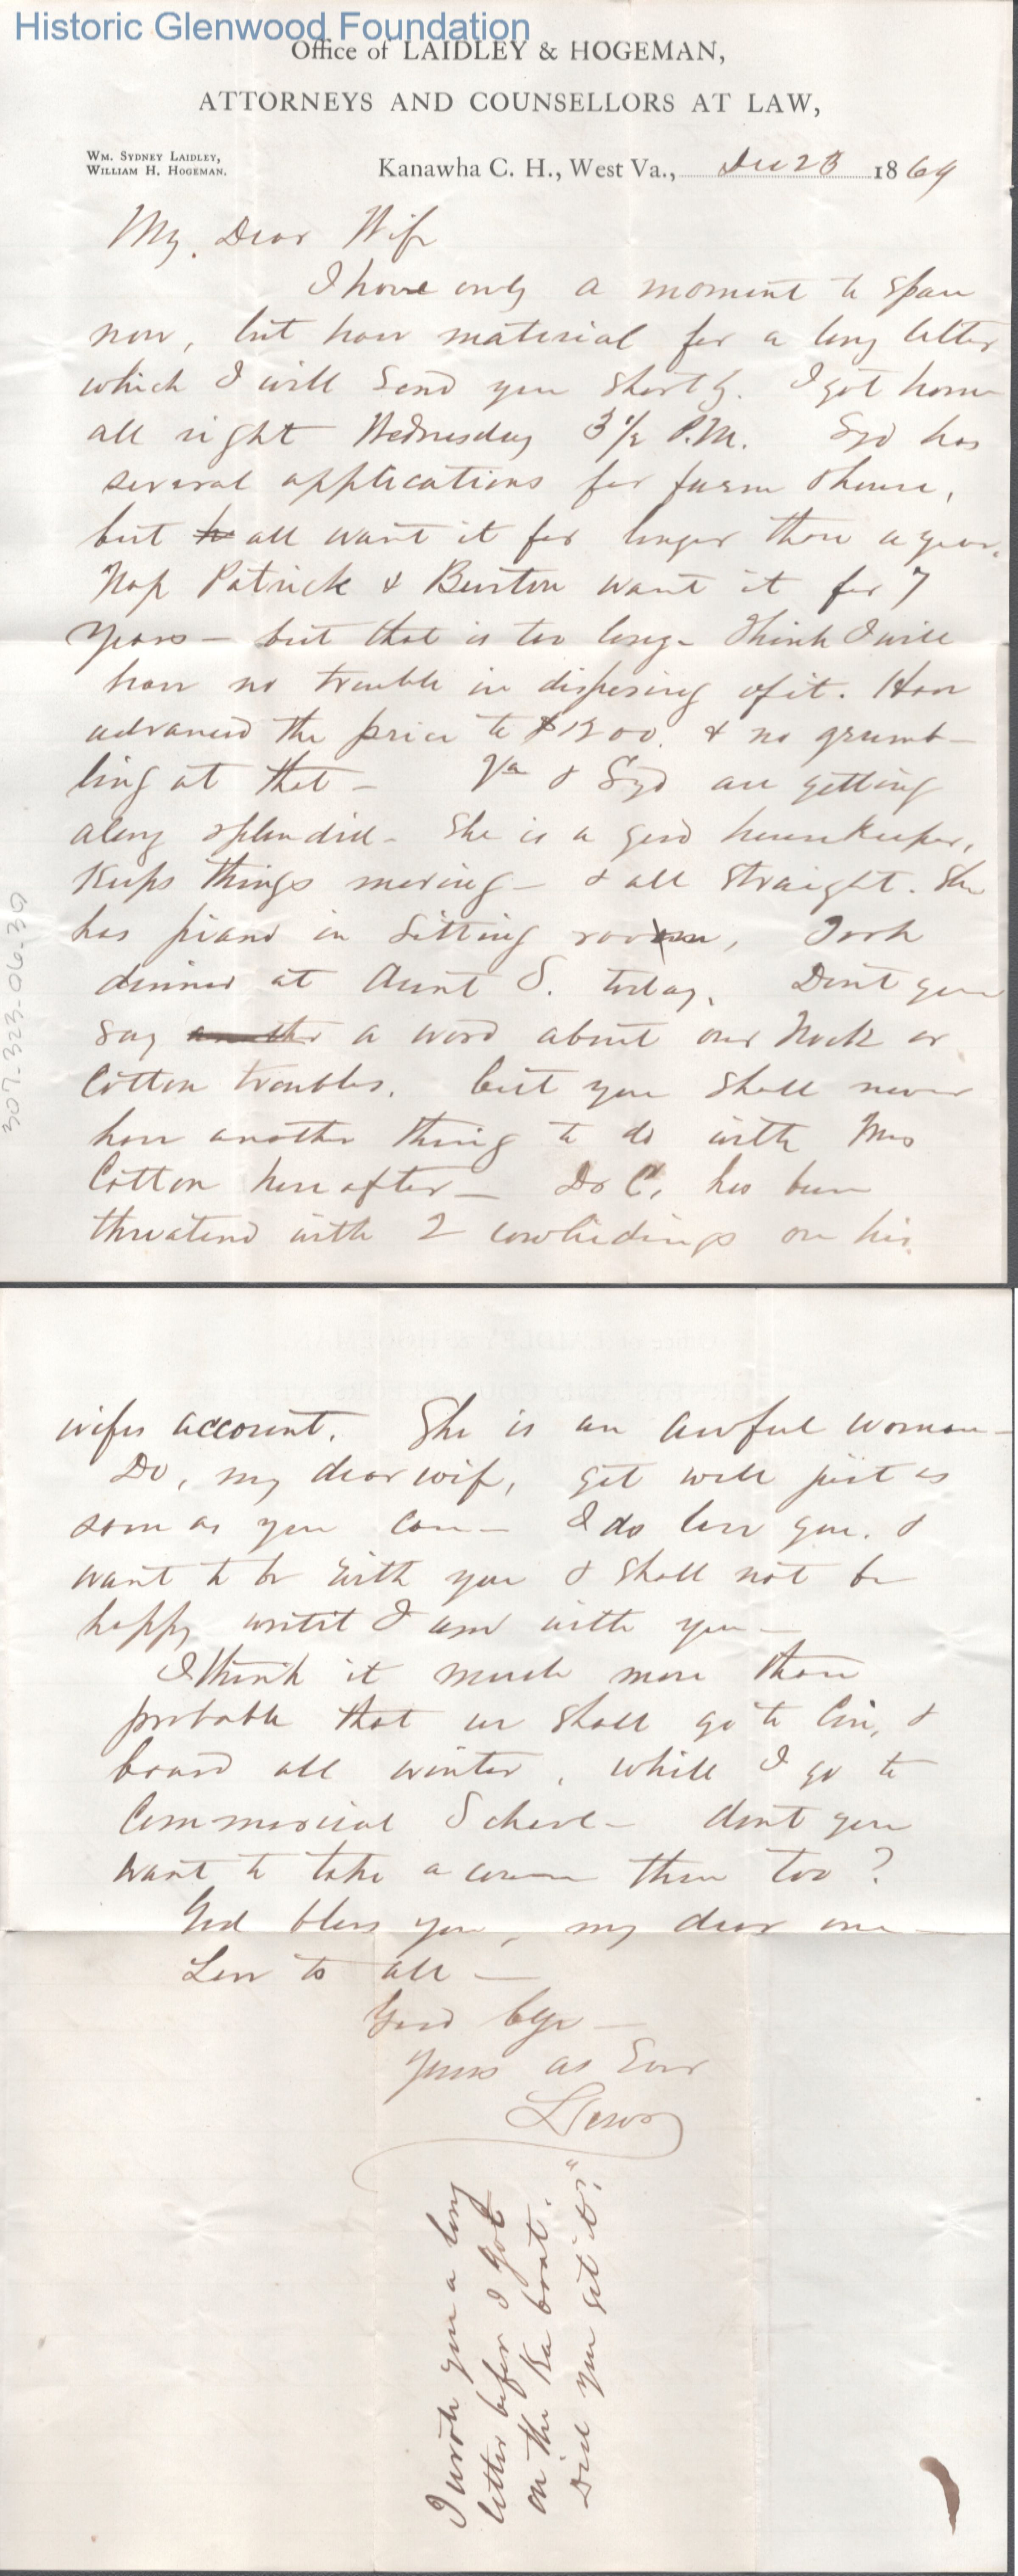 Historic Glenwood Foundation
Office of LAIDLEY & HOGEMAN,
ATTORNEYS AND COUNSELLORS AT LAW,
WM. SYDNEY LAIDLEY,
WILLIAM H. HOGEMAN.
Kanawha C. H., West Va., Dec 23 1869
My Dear Wife
I have only a moment to spare
now, but have material for a long letter
which I will send you shortly. I got home
all right Wednesday 3 1/2 P.M. Syd has
several applications for farm & house,
but all want it for longer than a year.
Nap Patrick & Burton want it for 7
years — but that is too long — Think I will
have no trouble in disposing of it. Have
advanced the price to $1200. & no grumb-
ling at that — Va & Syd are getting
along splendid — She is a good housekeeper,
keeps things moving — & all straight. She
has piano in sitting room, Took
dinner at Aunt S. today. Don't you
say a word about our Nock or
Cotton troubles. But you shall never
have another thing to do with Mrs
Cotton hereafter — Dr C. has been
threatend with 2 cowhidings on his
wifes account. She is an awful woman —
Do, my dear wife, get well just as
soon as you can — I do love you. &
want to be with you & shall not be
happy until I am with you —
I think it much more than
probable that we shall go to Cin, &
board all winter, while I go to
Commercial School — dont you
want to take a course there too?
God bless you, my dear one —
Love to all —
Good bye —
Yours as Ever
307.323.06.39
I wrote you a long
letter before I got
on the Ka boat.
Did you get it?"